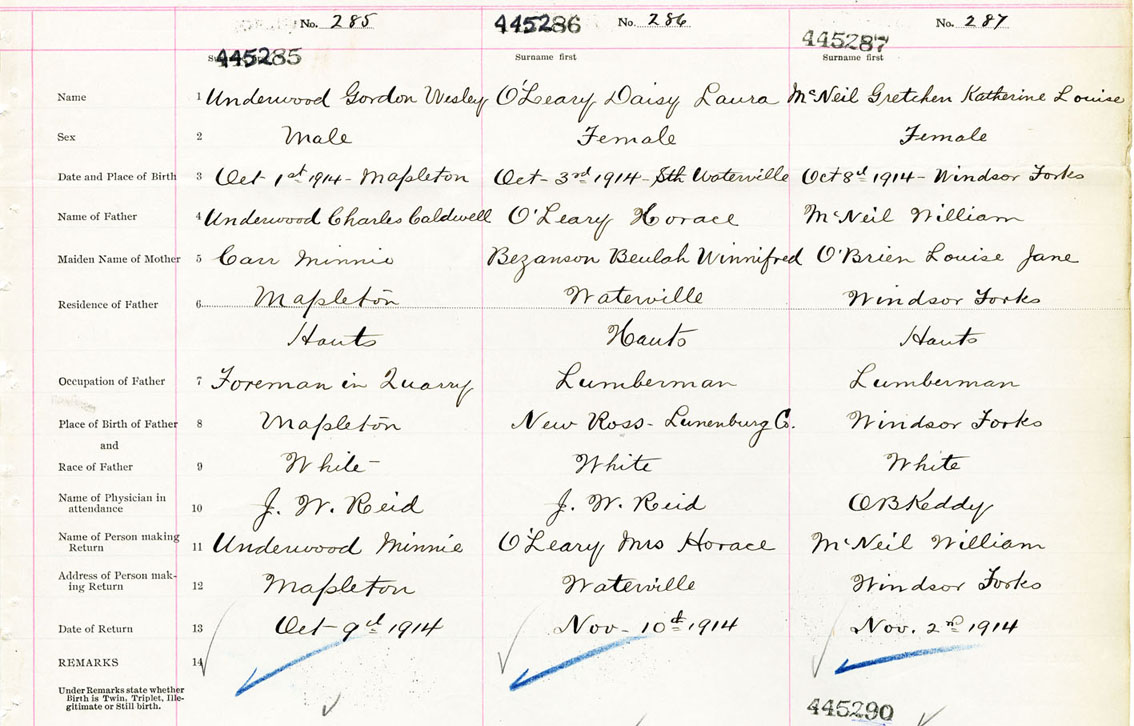 No. 285 No. 286 No. 287
445285 445286 445287
Surname first Surname first
Name 1 Underwood Gordon Wesley O'Leary Daisy Laura McNeil Gretchen Katherine Louise
Sex 2 Male Female Female
Date and Place of Birth 3 Oct 1st 1914 - Mapleton Oct - 3rd 1914 - Sth Waterville Oct 8th 1914 - Windsor Forks
Name of Father 4 Underwood Charles Caldwell O'Leary Horace McNeil William
Maiden Name of Mother 5 Carr Minnie Bezanson Beulah Winnifred O'Brien Louise Jane
Residence of Father 6 Mapleton Waterville Windsor Forks
Hants Hants Hants
Occupation of Father 7 Foreman in Quarry Lumberman Lumberman
Place of Birth of Father 8 Mapleton New Ross - Lunenburg Co. Windsor Forks
and
Race of Father 9 White White White
Name of Physician in
attendance 10 J. W. Reid J. W. Reid O B Keddy
Name of Person making
Return 11 Underwood Minnie O'Leary Mrs Horace McNeil William
Address of Person mak-
ing Return 12 Mapleton Waterville Windsor Forks
Date of Return 13 Oct 9th 1914 Nov - 10th 1914 Nov. 2nd 1914
REMARKS 14
Under Remarks state whether
Birth is Twin, Triplet, Ille-
gitimate or Still birth.
445290